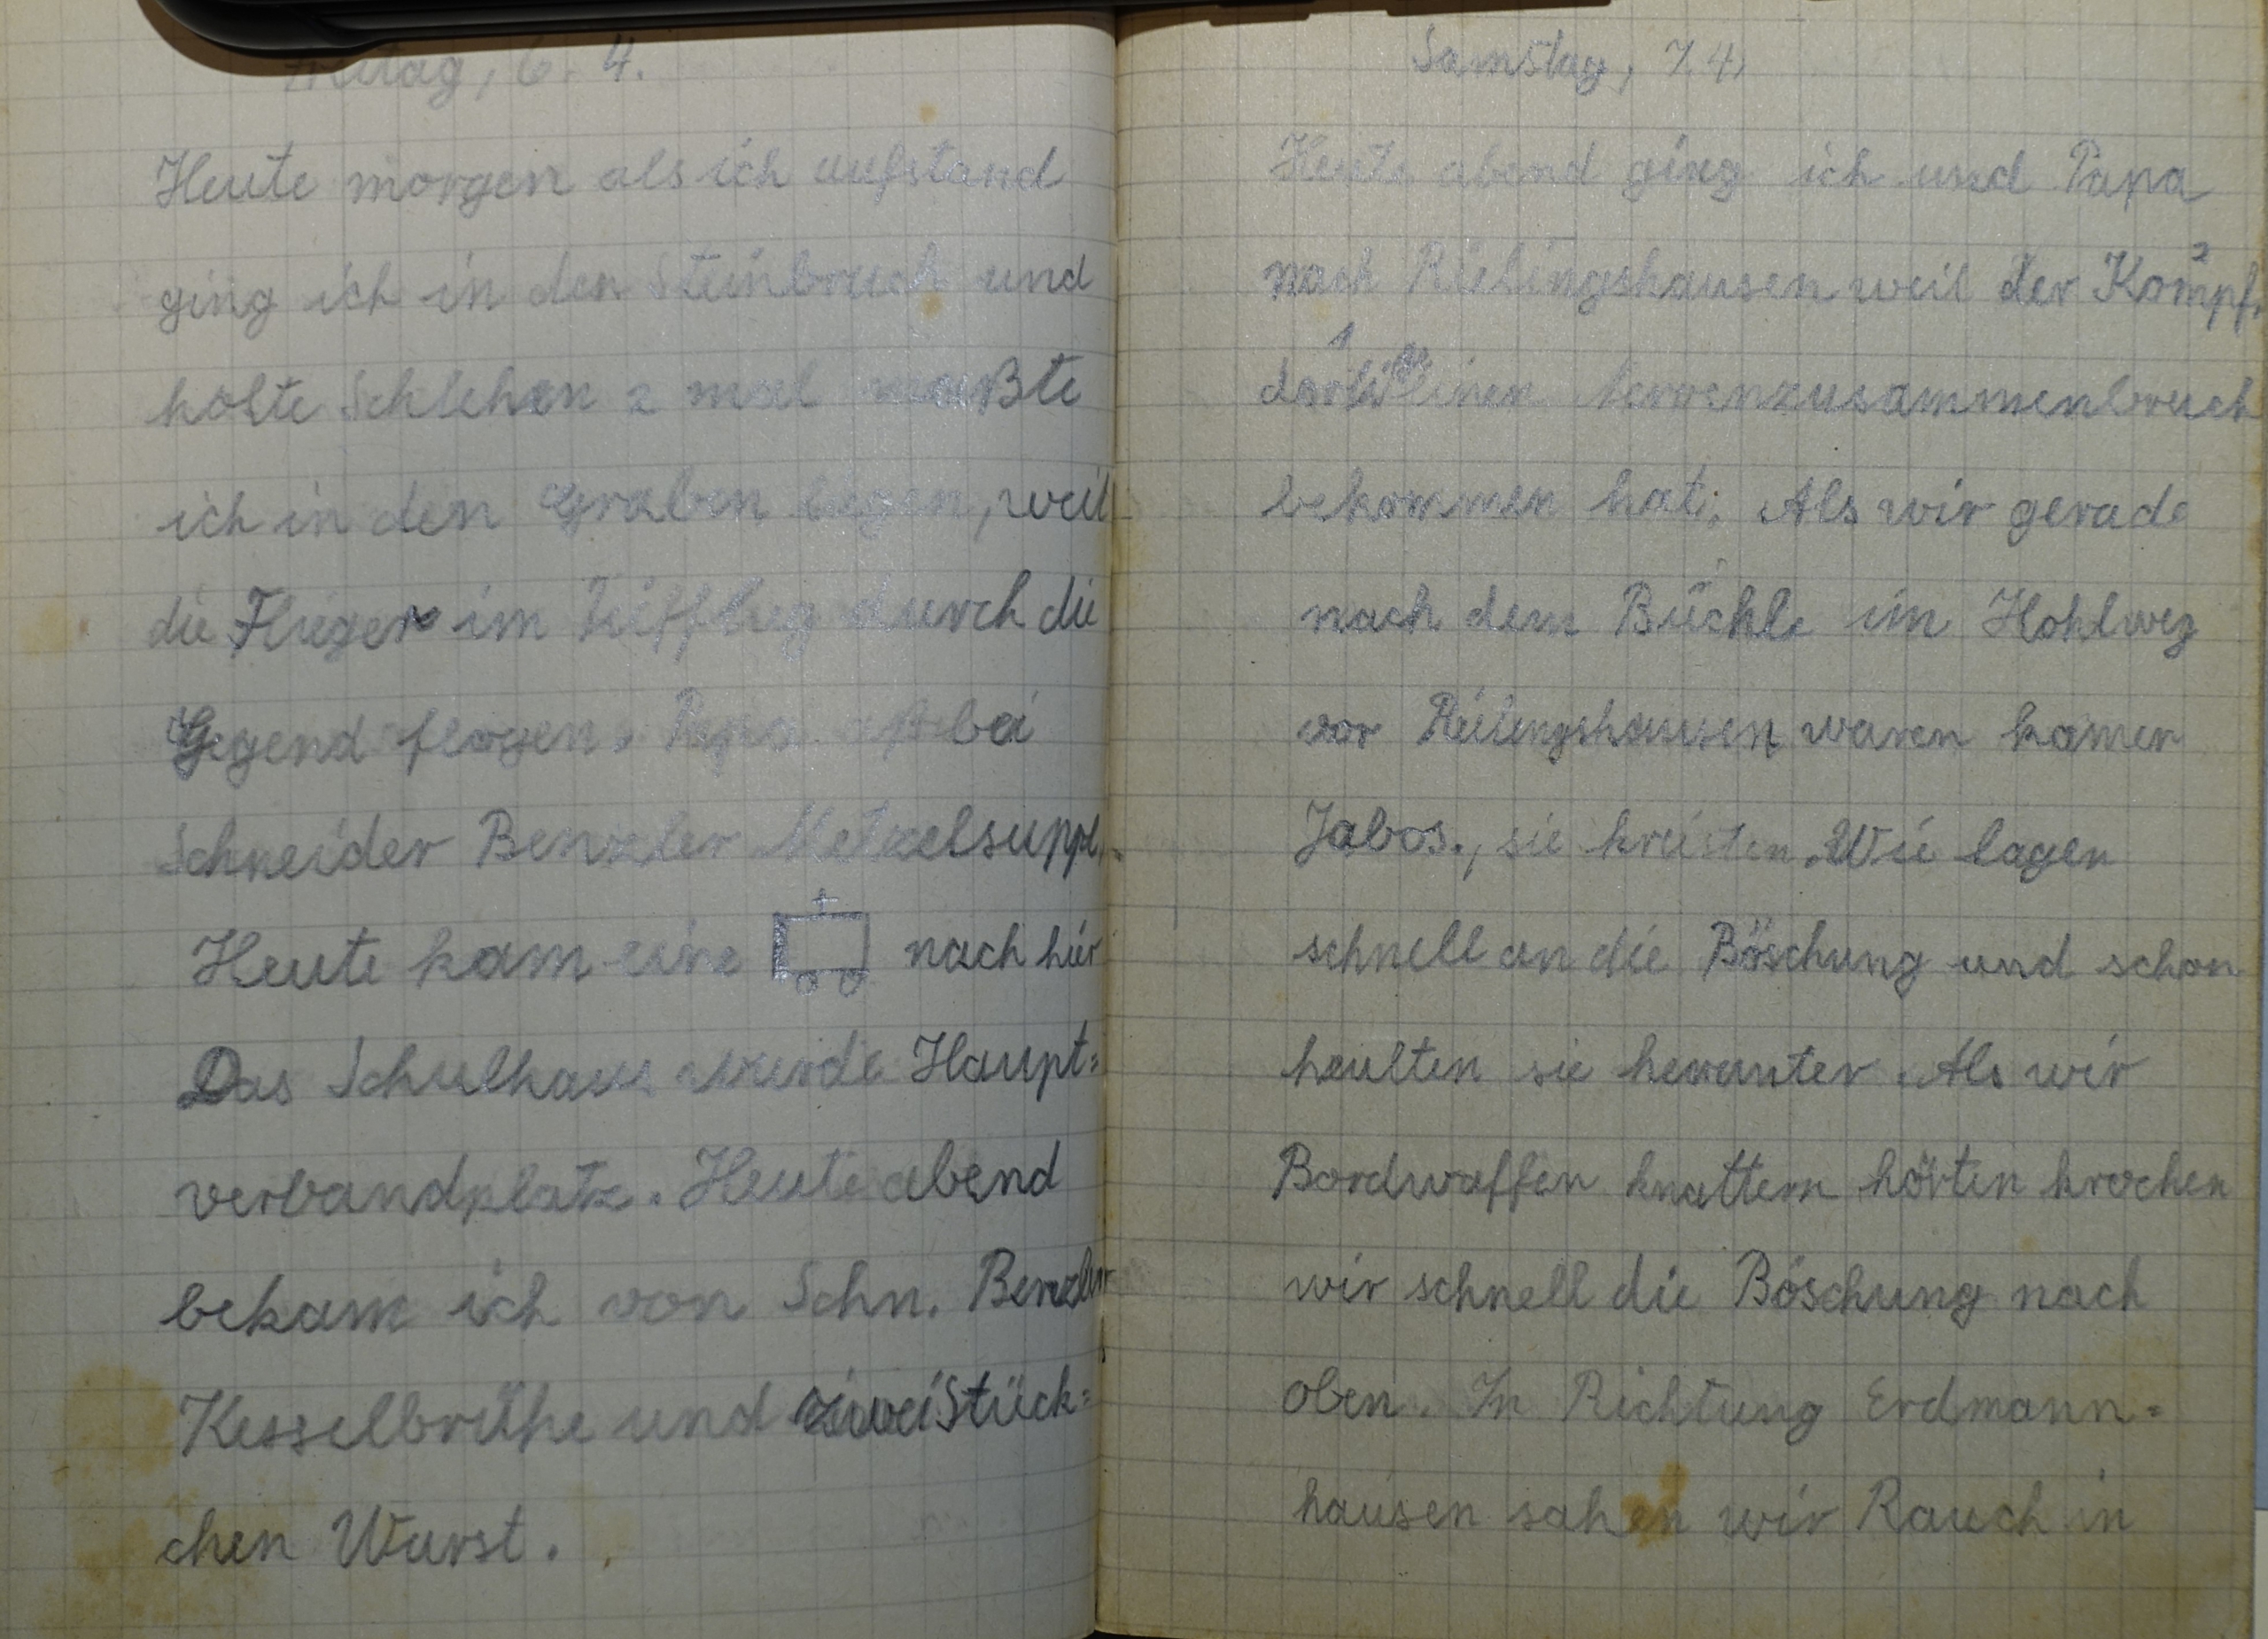 Freitag, 6. 4.
Heute morgen als ich aufstand
ging ich in den Steinbruch und
holte Schlehen 2 mal mußte
ich in den Graben liegen, weil
die Flieger im Tiefflug durch die
Gegend flogen. Papa aß bei
Schneider Benzler Metzelsuppe.
Heute kam eine nach hier
Das Schulhaus wurde Haupt=
verbandplatz. Heute abend
bekam ich von Schn. Benzler
Kesselbrühe und zwei Stück=
chen Wurst.
Samstag, 7. 4.
Heute abend ging ich und Papa
nach Rielingshausen weil der Kompf. 2
1
einen Nervenzusammenbruch
bekommen hat. Als wir gerade
nach dem Büchle im Hohlweg
vor Rielingshausen waren kamen
Jabos., sie kreisten. Wie lagen
schnell an die Böschung und schon
heulten sie herunter. Als wir
Bordwaffen knattern hörten krochen
wir schnell die Böschung nach
oben. In Richtung Erdmann=
hausen sahen wir Rauch in